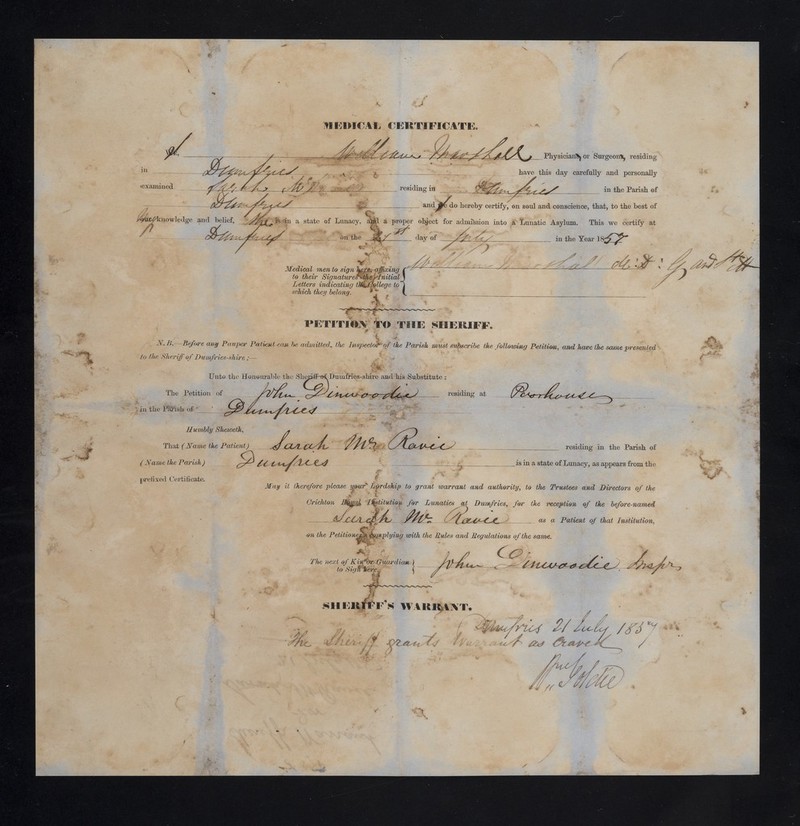 MEDICAL CERTIFICATE.
I William Marshall Physicians, or Surgeons, residing
in Dumfries have this day carefully and personally
examined Sarah residing in Dumfries in the Parish of
Dumfries and do hereby certify, on soul and conscience, that, to the best of
knowledge and belief, She is in a state of Lunacy, and a proper object for admission into a Lunatic Asylum. This we certify at
Dumfries on the 21st day of July in the Year 1857
William Marshall M: D:
Medical men to sign here, affixing
to their Signatures the Initial
Letters indicating the College to
which they belong.
PETITION TO THE SHERIFF.
N. B.—Before any Pauper Patient can be admitted, the Inspector of the Parish must subscribe the following Petition, and have the same presented
to the Sheriff of Dumfries-shire:—
Unto the Honourable the Sheriff of Dumfries-shire and his Substitute:
The Petition of John Dinwoodie residing at Poorhouse
in the Parish of Dumfries
Humbly Sheweth,
That (Name the Patient) Sarah Mc Ravie residing in the Parish of
(Name the Parish) Dumfries is in a state of Lunacy, as appears from the
prefixed Certificate.
May it therefore please your Lordship to grant warrant and authority, to the Trustees and Directors of the
Crichton Royal Institution for Lunatics at Dumfries, for the reception of the before-named
Sarah Mc Ravie as a Patient of that Institution,
on the Petitioner complying with the Rules and Regulations of the same.
The next of Kin or Guardian
to Sign here.
John Dinwoodie Inspr
SHERIFF'S WARRANT.
Dumfries 21 July 1857
The Sheriff grants Warrant as craved